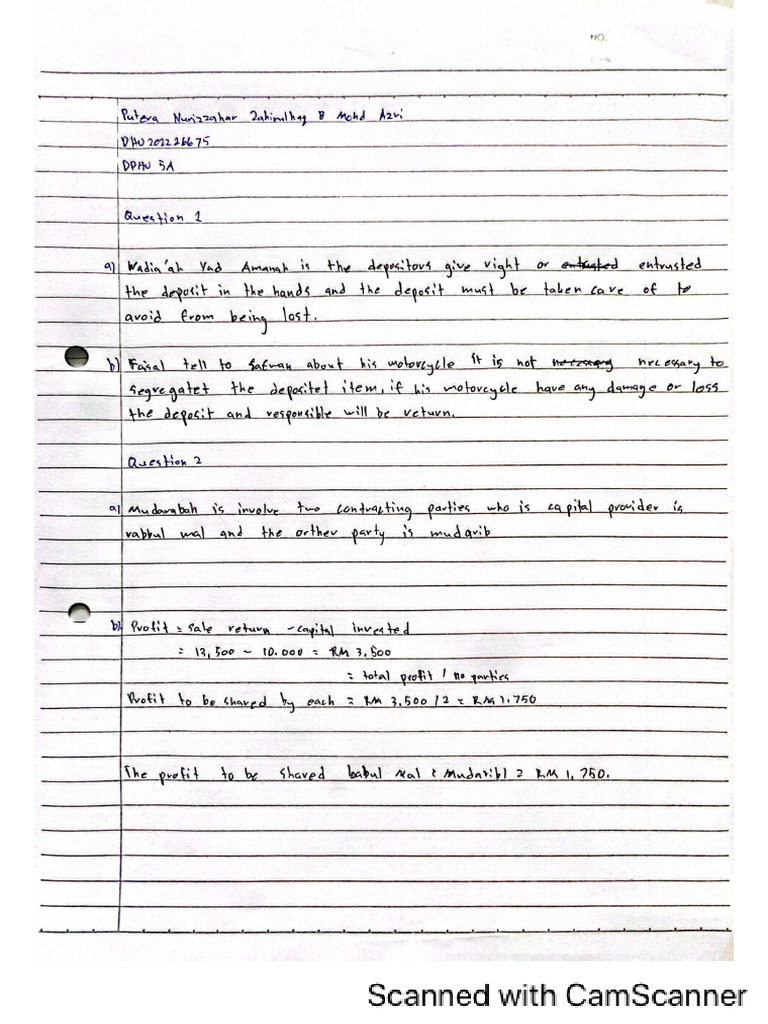 NO.
Putera Nurizzahar Zahirulhaq B Mohd Azri
DHU202226675
DPHU 5A
Question 1
a) Wadia'ah Yad Amanah is the depositors give right or entrusted entrusted
the deposit in the hands and the deposit must be taken care of to
avoid from being lost.
b) Faisal tell to Safwan about his motorcycle it is not necessary necessary to
segregatet the depositet item, if his motorcycle have any damage or loss
the deposit and responsible will be return.
Question 2
a) Mudarabah is involve two contracting parties who is capital provider is
rabbul mal and the orther party is mudarib
b) Profit = sale return - capital invested
= 13,500 - 10.000 = RM 3,500
= total profit / no parties
Profit to be shared by each = RM 3,500 / 2 = RM 1.750
The profit to be shared babul Mal & Mudarib) = RM 1,750.
Scanned with CamScanner